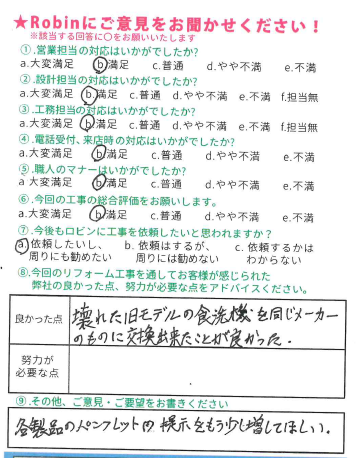 ★Robinにご意見をお聞かせください！
※該当する回答に〇をお願いいたします
①.営業担当の対応はいかがでしたか?
a.大変満足 b.満足 c.普通 d.やや不満 e.不満
②.設計担当の対応はいかがでしたか?
a.大変満足 b.満足 c.普通 d.やや不満 e.不満 f.担当無
③.工務担当の対応はいかがでしたか?
a.大変満足 b.満足 c.普通 d.やや不満 e.不満 f.担当無
④.電話受付、来店時の対応はいかがでしたか?
a.大変満足 b.満足 c.普通 d.やや不満 e.不満
⑤.職人のマナーはいかがでしたか?
a 大変満足 b.満足 c.普通 d.やや不満 e.不満
⑥.今回の工事の総合評価をお願いします。
a.大変満足 b.満足 c.普通 d.やや不満 e.不満
⑦.今後もロビンに工事を依頼したいと思われますか？
a.依頼したいし、 b. 依頼はするが、 c. 依頼するかは
周りにも勧めたい 周りには勧めない わからない
⑧.今回のリフォーム工事を通してお客様が感じられた
弊社の良かった点、努力が必要な点をアドバイスください。
良かった点 壊れた旧モデルの食洗機を同じメーカー
のものに交換出来たことが良かった.
努力が
必要な点
⑨.その他、ご意見・ご要望をお書きください
各製品のパンフレットの提示をもう少し増してほしい.